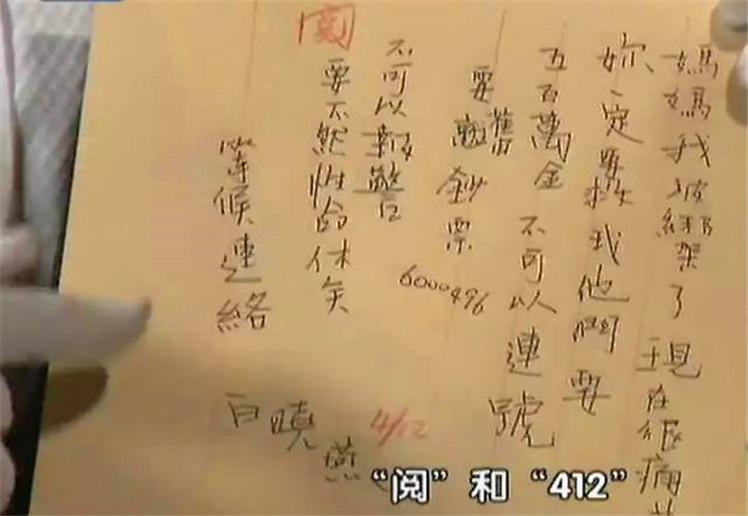 媽媽我被綁架了現在很痛苦
妳一定要救我他們要
五百萬金不可以連號
要舊鈔票
6000496
不可以報警
閱
要不然性命休矣
等候連絡
白曉燕
4/12
“阅”和“412”